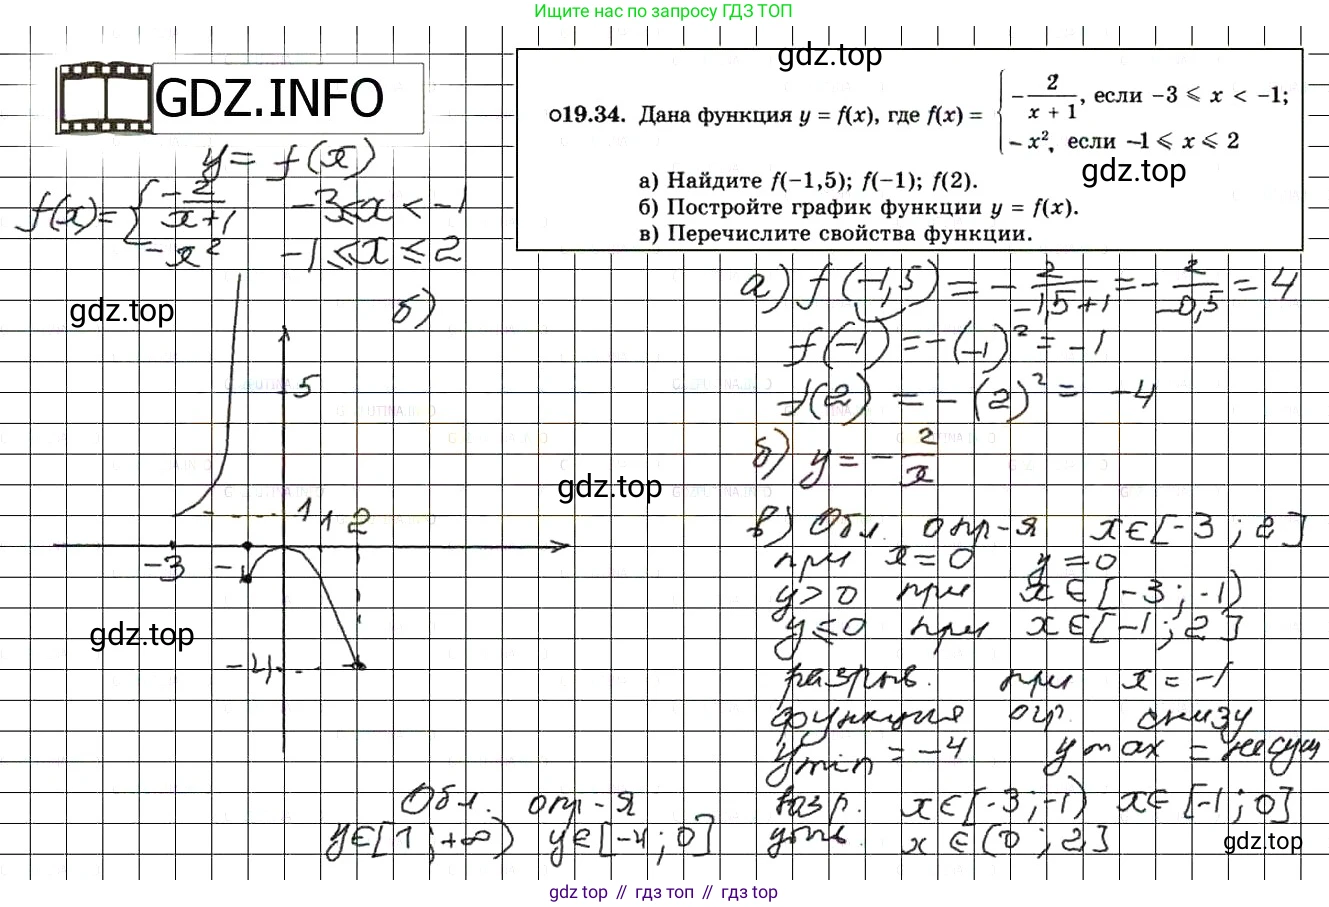 Ищите нас по запросу ГДЗ ТОП
gdz.top
GDZ.INFO
о19.34. Дана функция y = f(x), где f(x) = { -2/(x + 1), если -3 ⩽ x < -1;
-x², если -1 ⩽ x ⩽ 2
gdz.top
а) Найдите f(-1,5); f(-1); f(2).
б) Постройте график функции y = f(x).
в) Перечислите свойства функции.
y = f(x)
f(x) = { -2/(x+1) -3 ⩽ x < -1
-x² -1 ⩽ x ⩽ 2
gdz.top
б)
5
1 1 2
-3 -1
gdz.top
-4
а) f(-1,5) = -2/(-1,5+1) = -2/(-0,5) = 4
f(-1) = -(-1)² = -1
f(2) = -(2)² = -4
б) y = -2/x
gdz.top
в) Обл. опр-я x∈[-3; 2]
при x=0 y=0
y>0 при x∈[-3; -1)
y⩽0 при x∈[-1; 2]
разрыв. при x = -1
функция огр. снизу
y min = -4 y max = не сущ
возр. x∈[-3; -1) x∈[-1; 0]
убыв. x∈(0; 2]
Обл. опр-я
y∈[1; +∞) y∈[-4; 0]
gdz.top
gdz top // гдз топ // gdz top